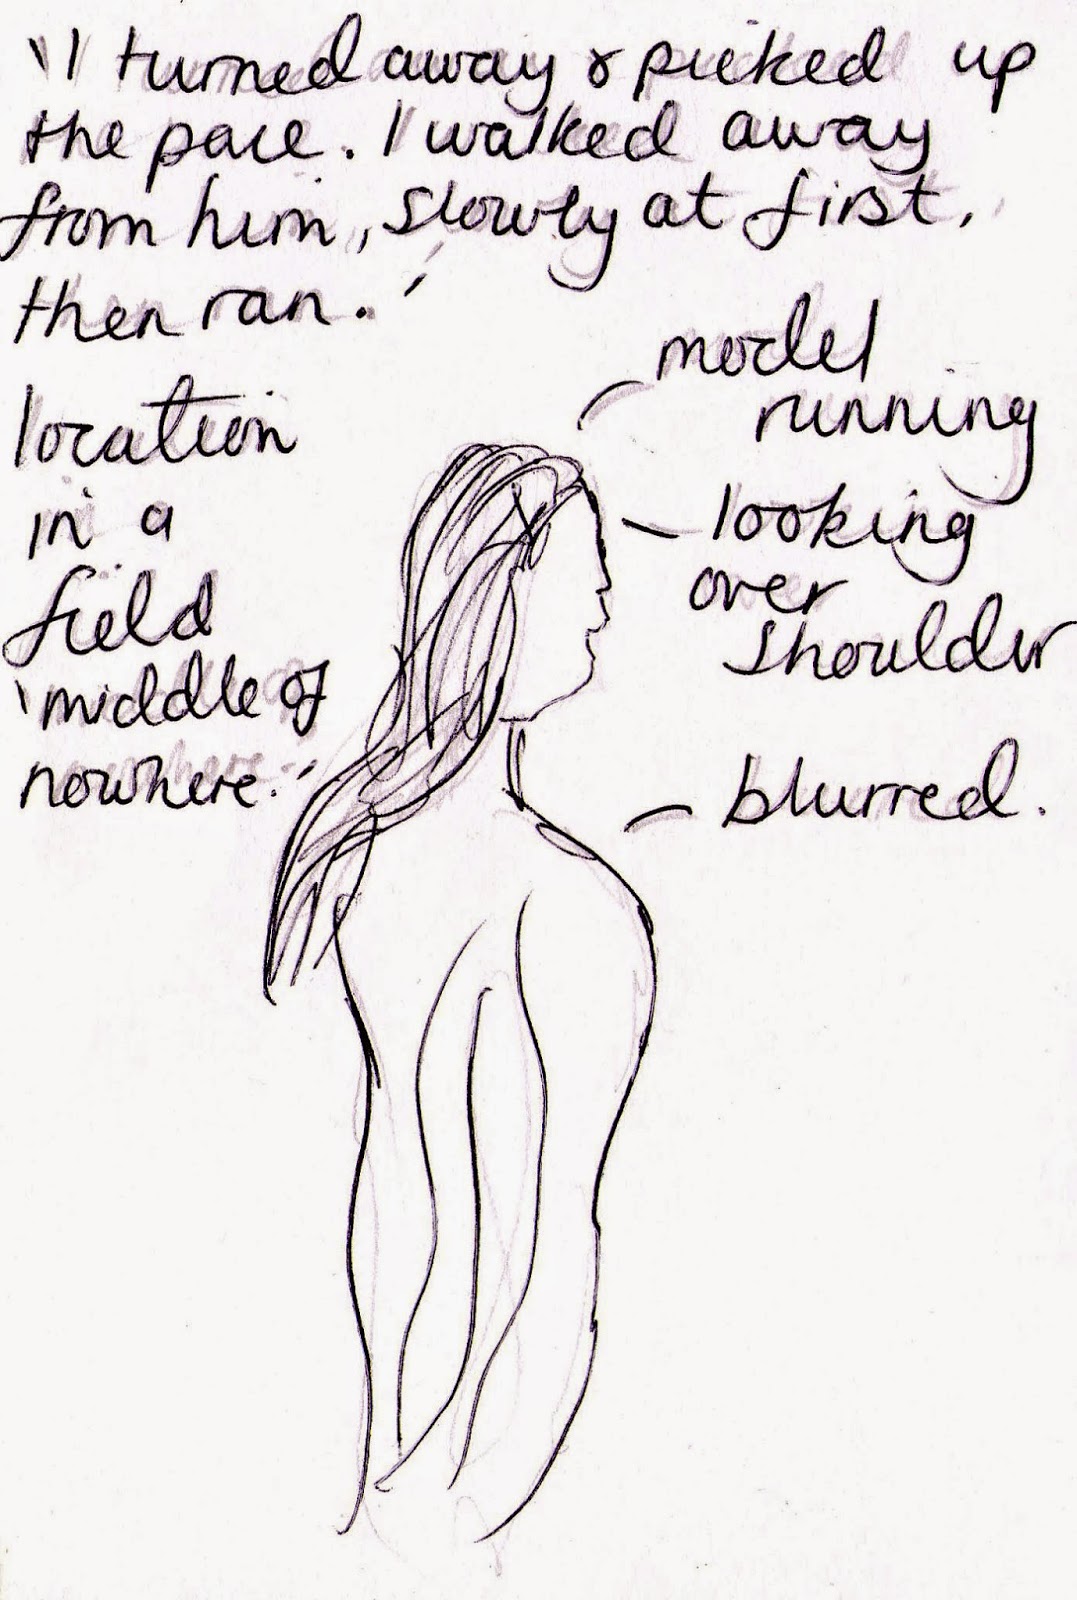 'I turned away & picked up
the pace. I walked away
from him, slowly at first,
then ran.'
location
in a
field
'middle of
nowhere.'
model
running
looking
over
shoulder
blurred.